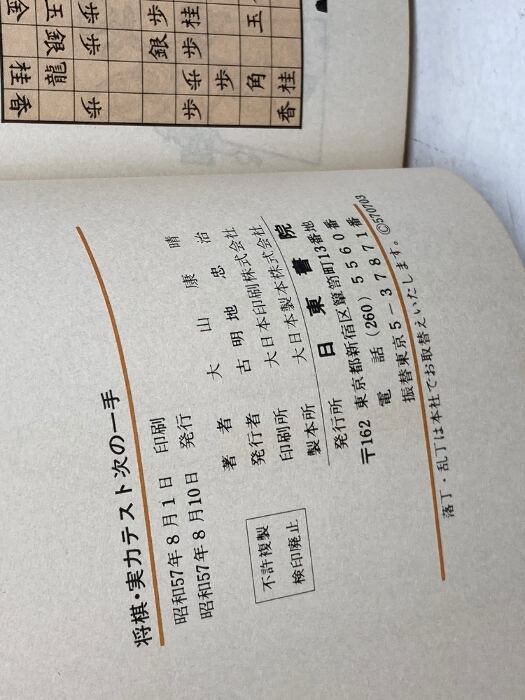 金玉歩歩桂玉
銀歩銀歩
桂龍歩歩角桂
香歩歩香
将棋・実力テスト次の一手
昭和57年8月1日 印刷
昭和57年8月10日 発行
著者 大山康晴
発行者 古明地忠治
印刷所 大日本印刷株式会社
製本所 大日本製本株式会社
発行所 日東書院
〒162 東京都新宿区簞笥町13番地
電話(260)5560番
振替東京5-37871番
©570703
不許複製
検印廃止
落丁・乱丁は本社でお取替えいたします。